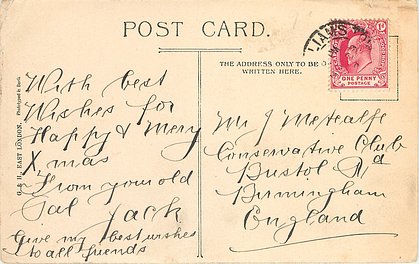 POST CARD.
THE ADDRESS ONLY TO BE
WRITTEN HERE.
G. & H. EAST LONDON.
ONE PENNY
POSTAGE
With best
Wishes for
Happy & Mery
Xmas
From your old
Pal Jack
Give my best wishes
to all friends
Mr J Metcalfe
Conservative Club
Bristol Rd
Birmingham
England